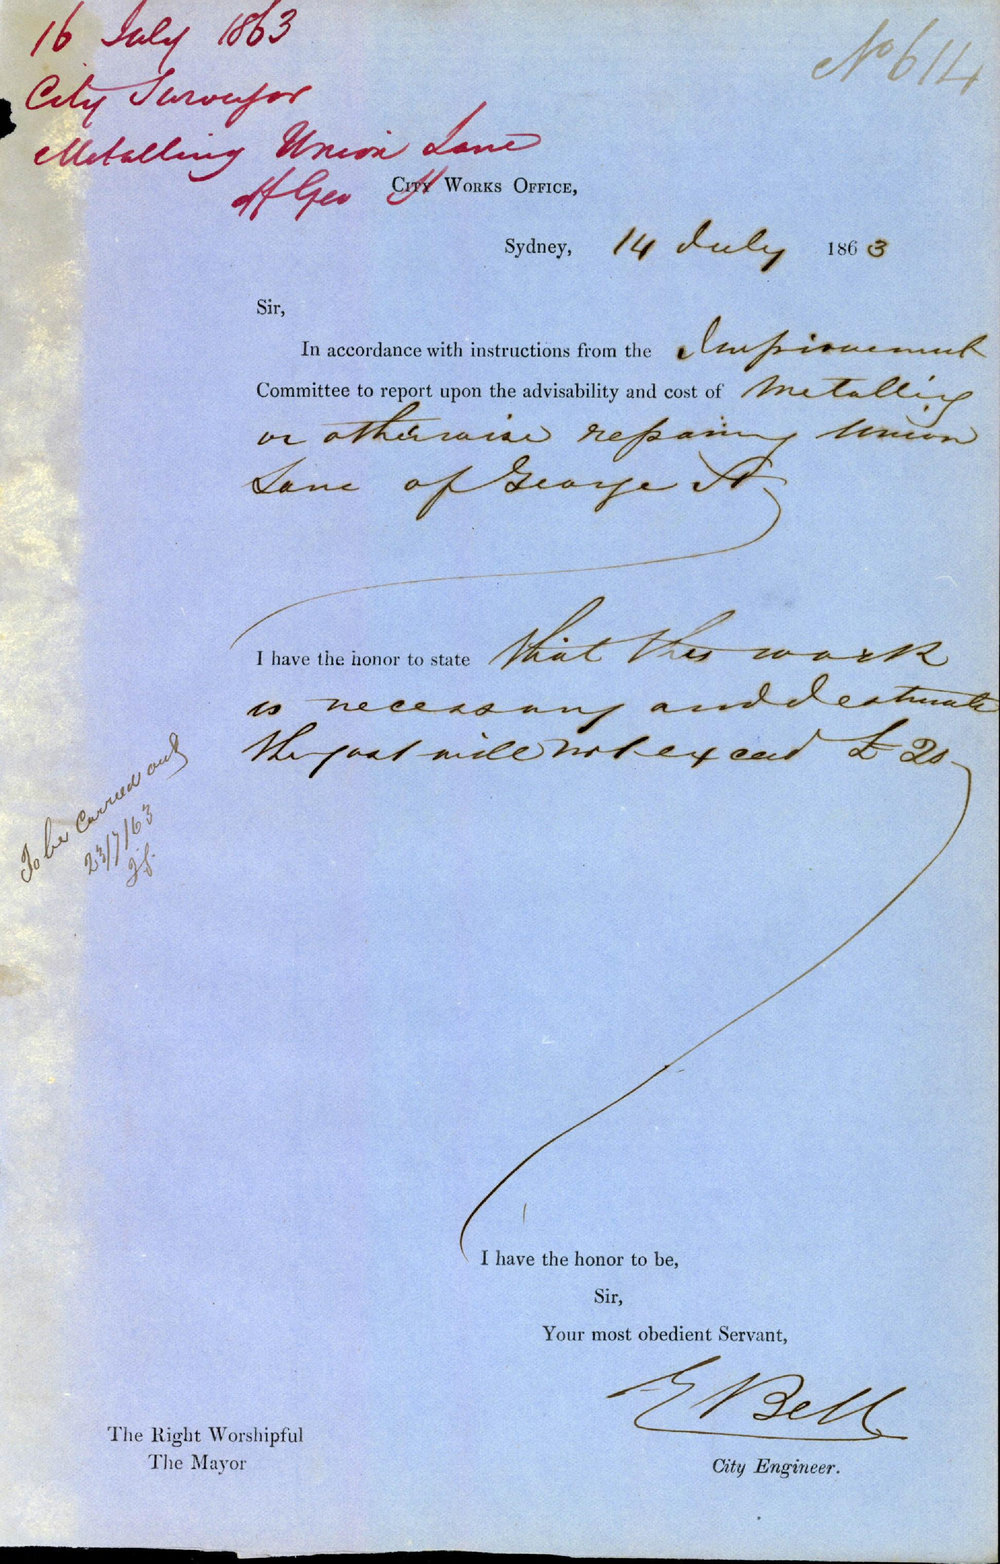 16 July 1863
No 614
City Surveyor
Metalling Union Lane
of Geo St
City Works Office,
Sydney, 14 July 1863
Sir,
In accordance with instructions from the Improvement
Committee to report upon the advisability and cost of Metalling
or otherwise repairing Union
Lane of George St
I have the honor to state that this work
is necessary and I estimate
the cost will not exceed £20
To be carried out
23/7/63
I have the honor to be,
Sir,
Your most obedient Servant,
E Bell
City Engineer.
The Right Worshipful
The Mayor